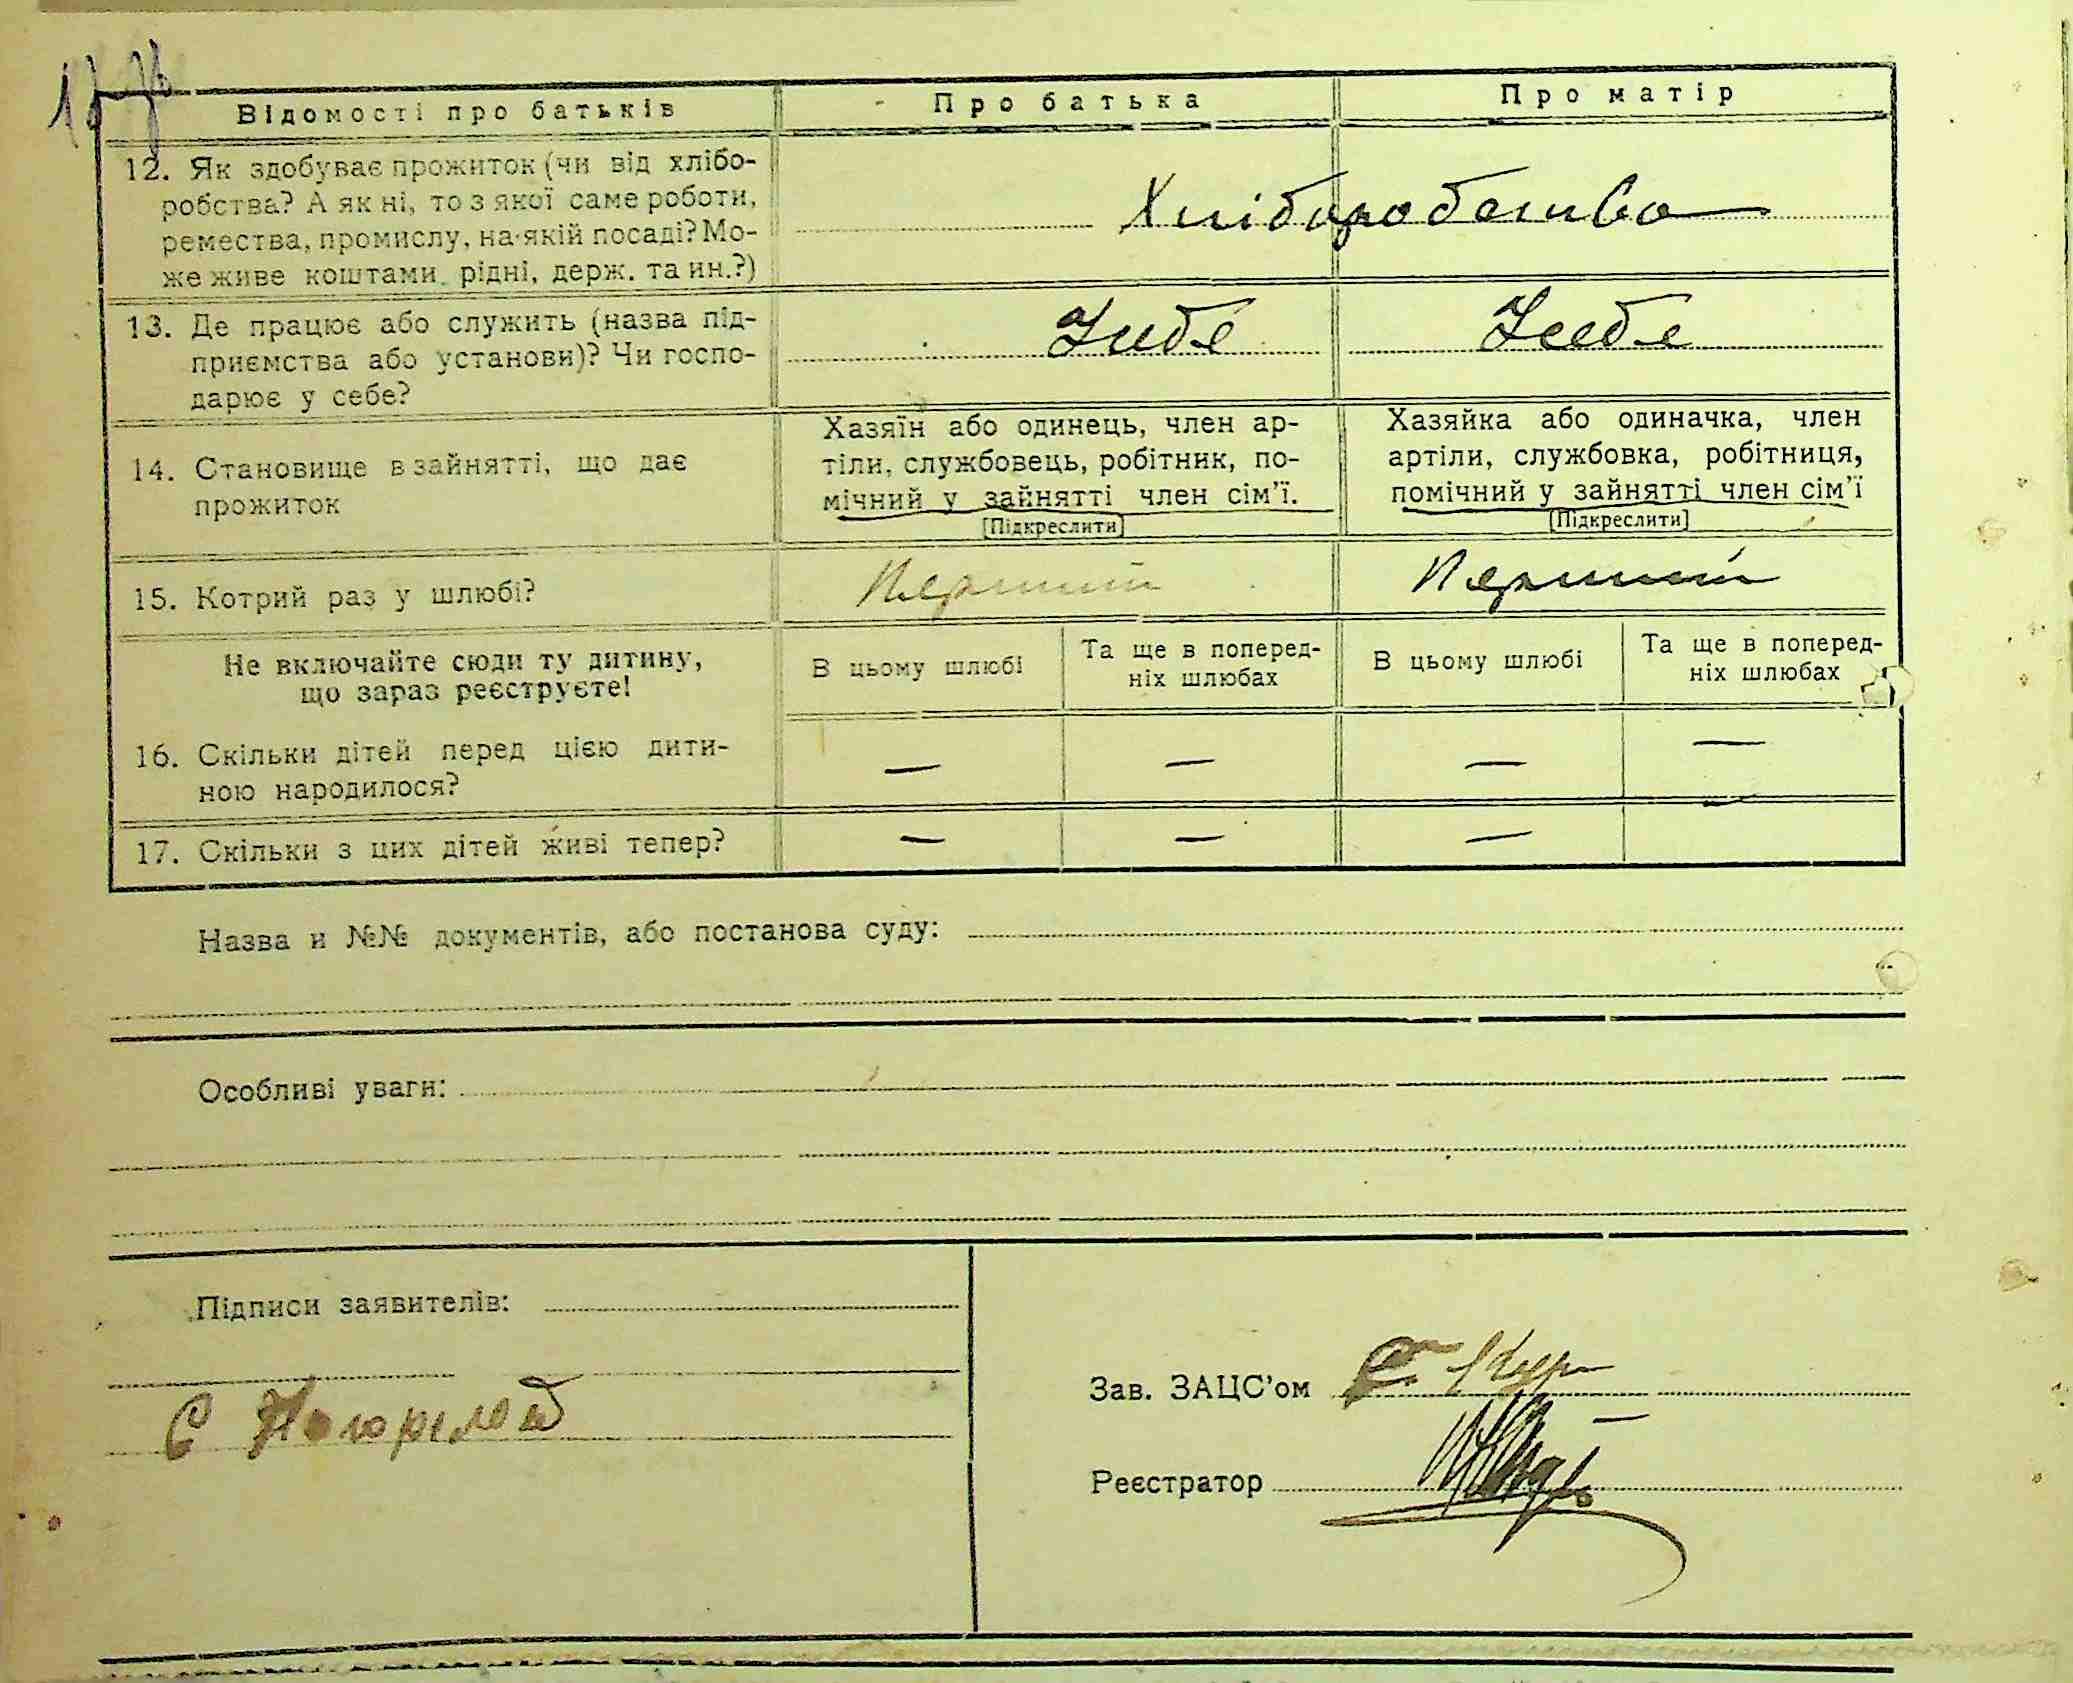 Відомості про батьків
Про батька
Про матір
12. Як здобуває прожиток (чи від хлібо-
робства? А як ні, то з якої саме роботи,
ремества, промислу, на якій посаді? Мо-
же живе коштами рідні, держ. та ин.?)
Хліборобство
13. Де працює або служить (назва під-
приємства або установи)? Чи госпо-
дарює у себе?
У себе
У себе
14. Становище в зайнятті, що дає
прожиток
Хазяїн або одинець, член ар-
тіли, службовець, робітник, по-
мічний у зайнятті член сім'ї.
[Підкреслити]
Хазяйка або одиначка, член
артіли, службовка, робітниця,
помічний у зайнятті член сім'ї
[Підкреслити]
15. Котрий раз у шлюбі?
Перший
Перший
Не включайте сюди ту дитину,
що зараз реєструєте!
В цьому шлюбі
Та ще в поперед-
ніх шлюбах
В цьому шлюбі
Та ще в поперед-
ніх шлюбах
16. Скільки дітей перед цією дити-
ною народилося?
— — — —
17. Скільки з цих дітей живі тепер?
— — —
Назва и №№ документів, або постанова суду:
Особливі уваги:
Підписи заявителів:
Зав. ЗАЦС'ом
Реєстратор